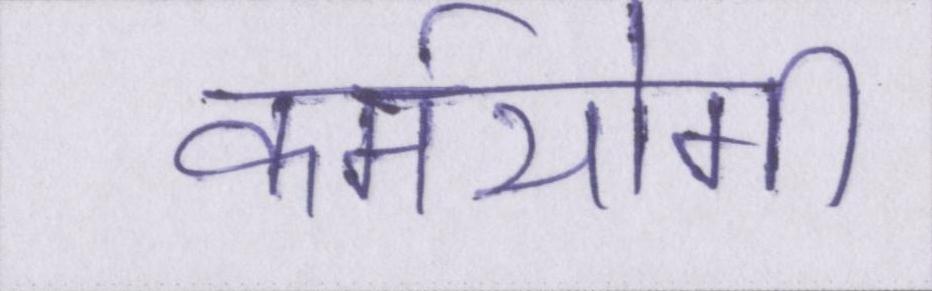 कर्मयोगी